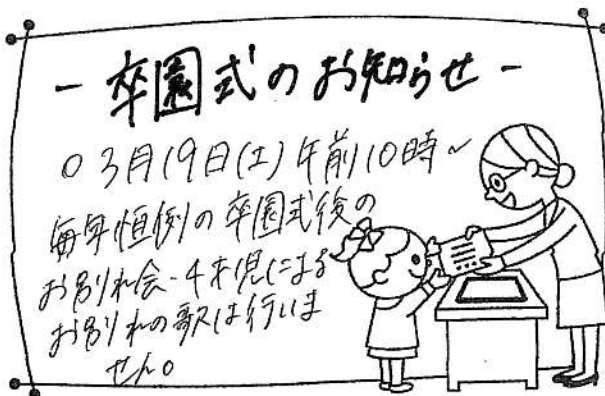 - 卒園式のお知らせ -
○ 3月19日(土)午前10時~
毎年恒例の卒園式後の
お別れ会・4才児による
お別れの歌は行いま
せん。